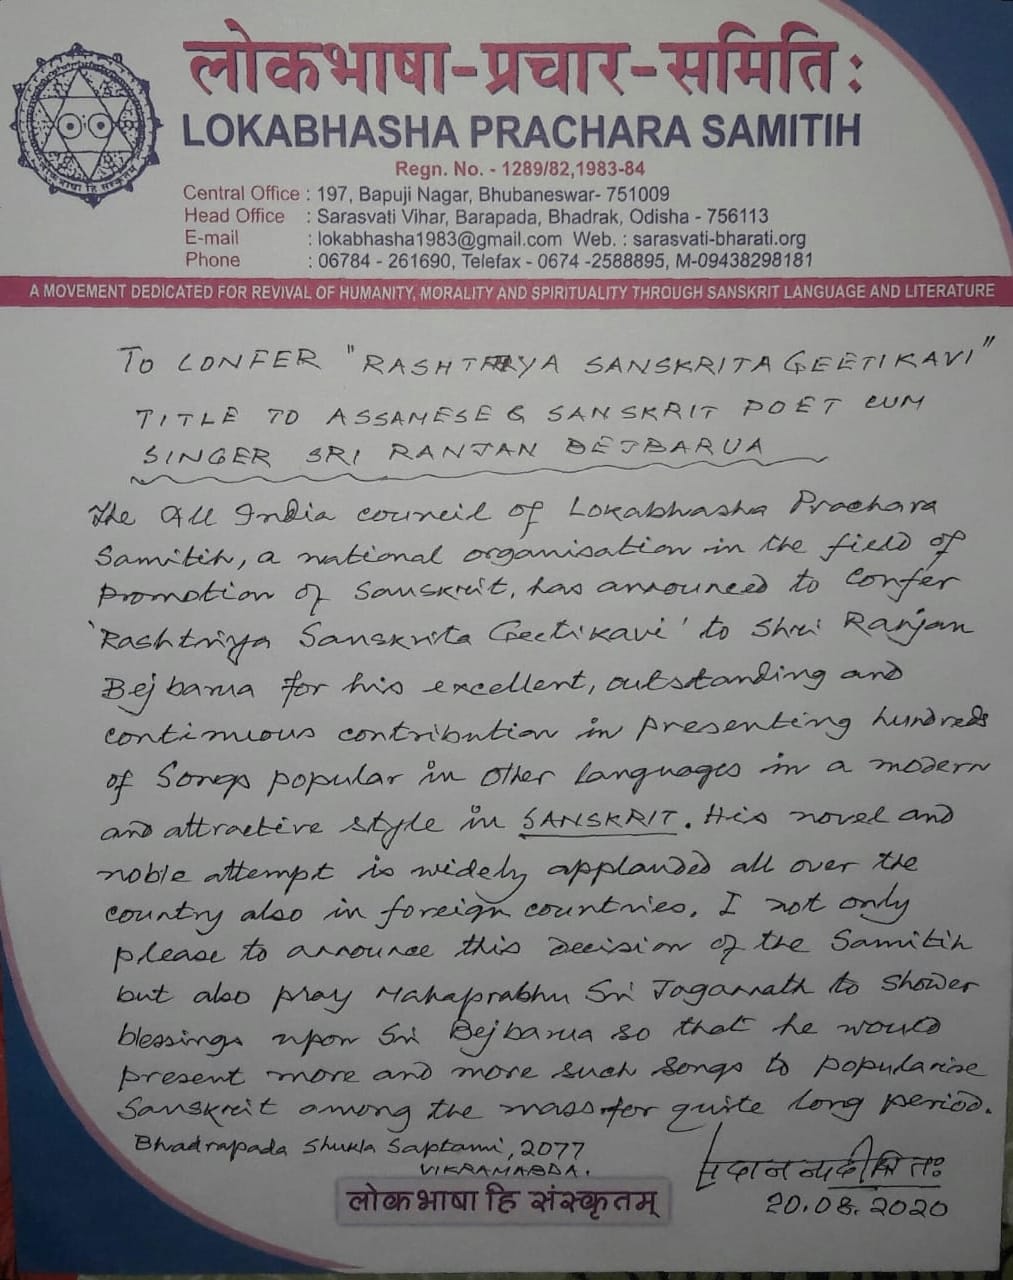 लोकभाषा-प्रचार-समितिः
LOKABHASHA PRACHARA SAMITIH
Regn. No. - 1289/82,1983-84
Central Office : 197, Bapuji Nagar, Bhubaneswar- 751009
Head Office : Sarasvati Vihar, Barapada, Bhadrak, Odisha - 756113
E-mail : lokabhasha1983@gmail.com Web. : sarasvati-bharati.org
Phone : 06784 - 261690, Telefax - 0674 -2588895, M-09438298181
लोकभाषा हि संस्कृतम्
A MOVEMENT DEDICATED FOR REVIVAL OF HUMANITY, MORALITY AND SPIRITUALITY THROUGH SANSKRIT LANGUAGE AND LITERATURE
TO CONFER "RASHTRIYA SANSKRITA GEETIKAVI"
TITLE TO ASSAMESE & SANSKRIT POET CUM
SINGER SRI RANJAN BEJBARUA
The All India council of Lokabhasha Prachara
Samitih, a national organisation in the field of
promotion of Sanskrit, has announced to confer
'Rashtriya Sanskrita Geetikavi' to Shri Ranjan
Bejbarua for his excellent, outstanding and
continuous contribution in presenting hundreds
of Songs popular in other languages in a modern
and attractive style in SANSKRIT. His novel and
noble attempt is widely applauded all over the
country also in foreign countries. I not only
please to announce this decision of the Samitih
but also pray Mahaprabhu Sri Jagannath to shower
blessings upon Sri Bejbarua so that he would
present more and more such songs to popularise
Sanskrit among the mass for quite long period.
Bhadrapada Shukla Saptami, 2077
VIKRAMABDA.
लोकभाषा हि संस्कृतम्
20.08.2020